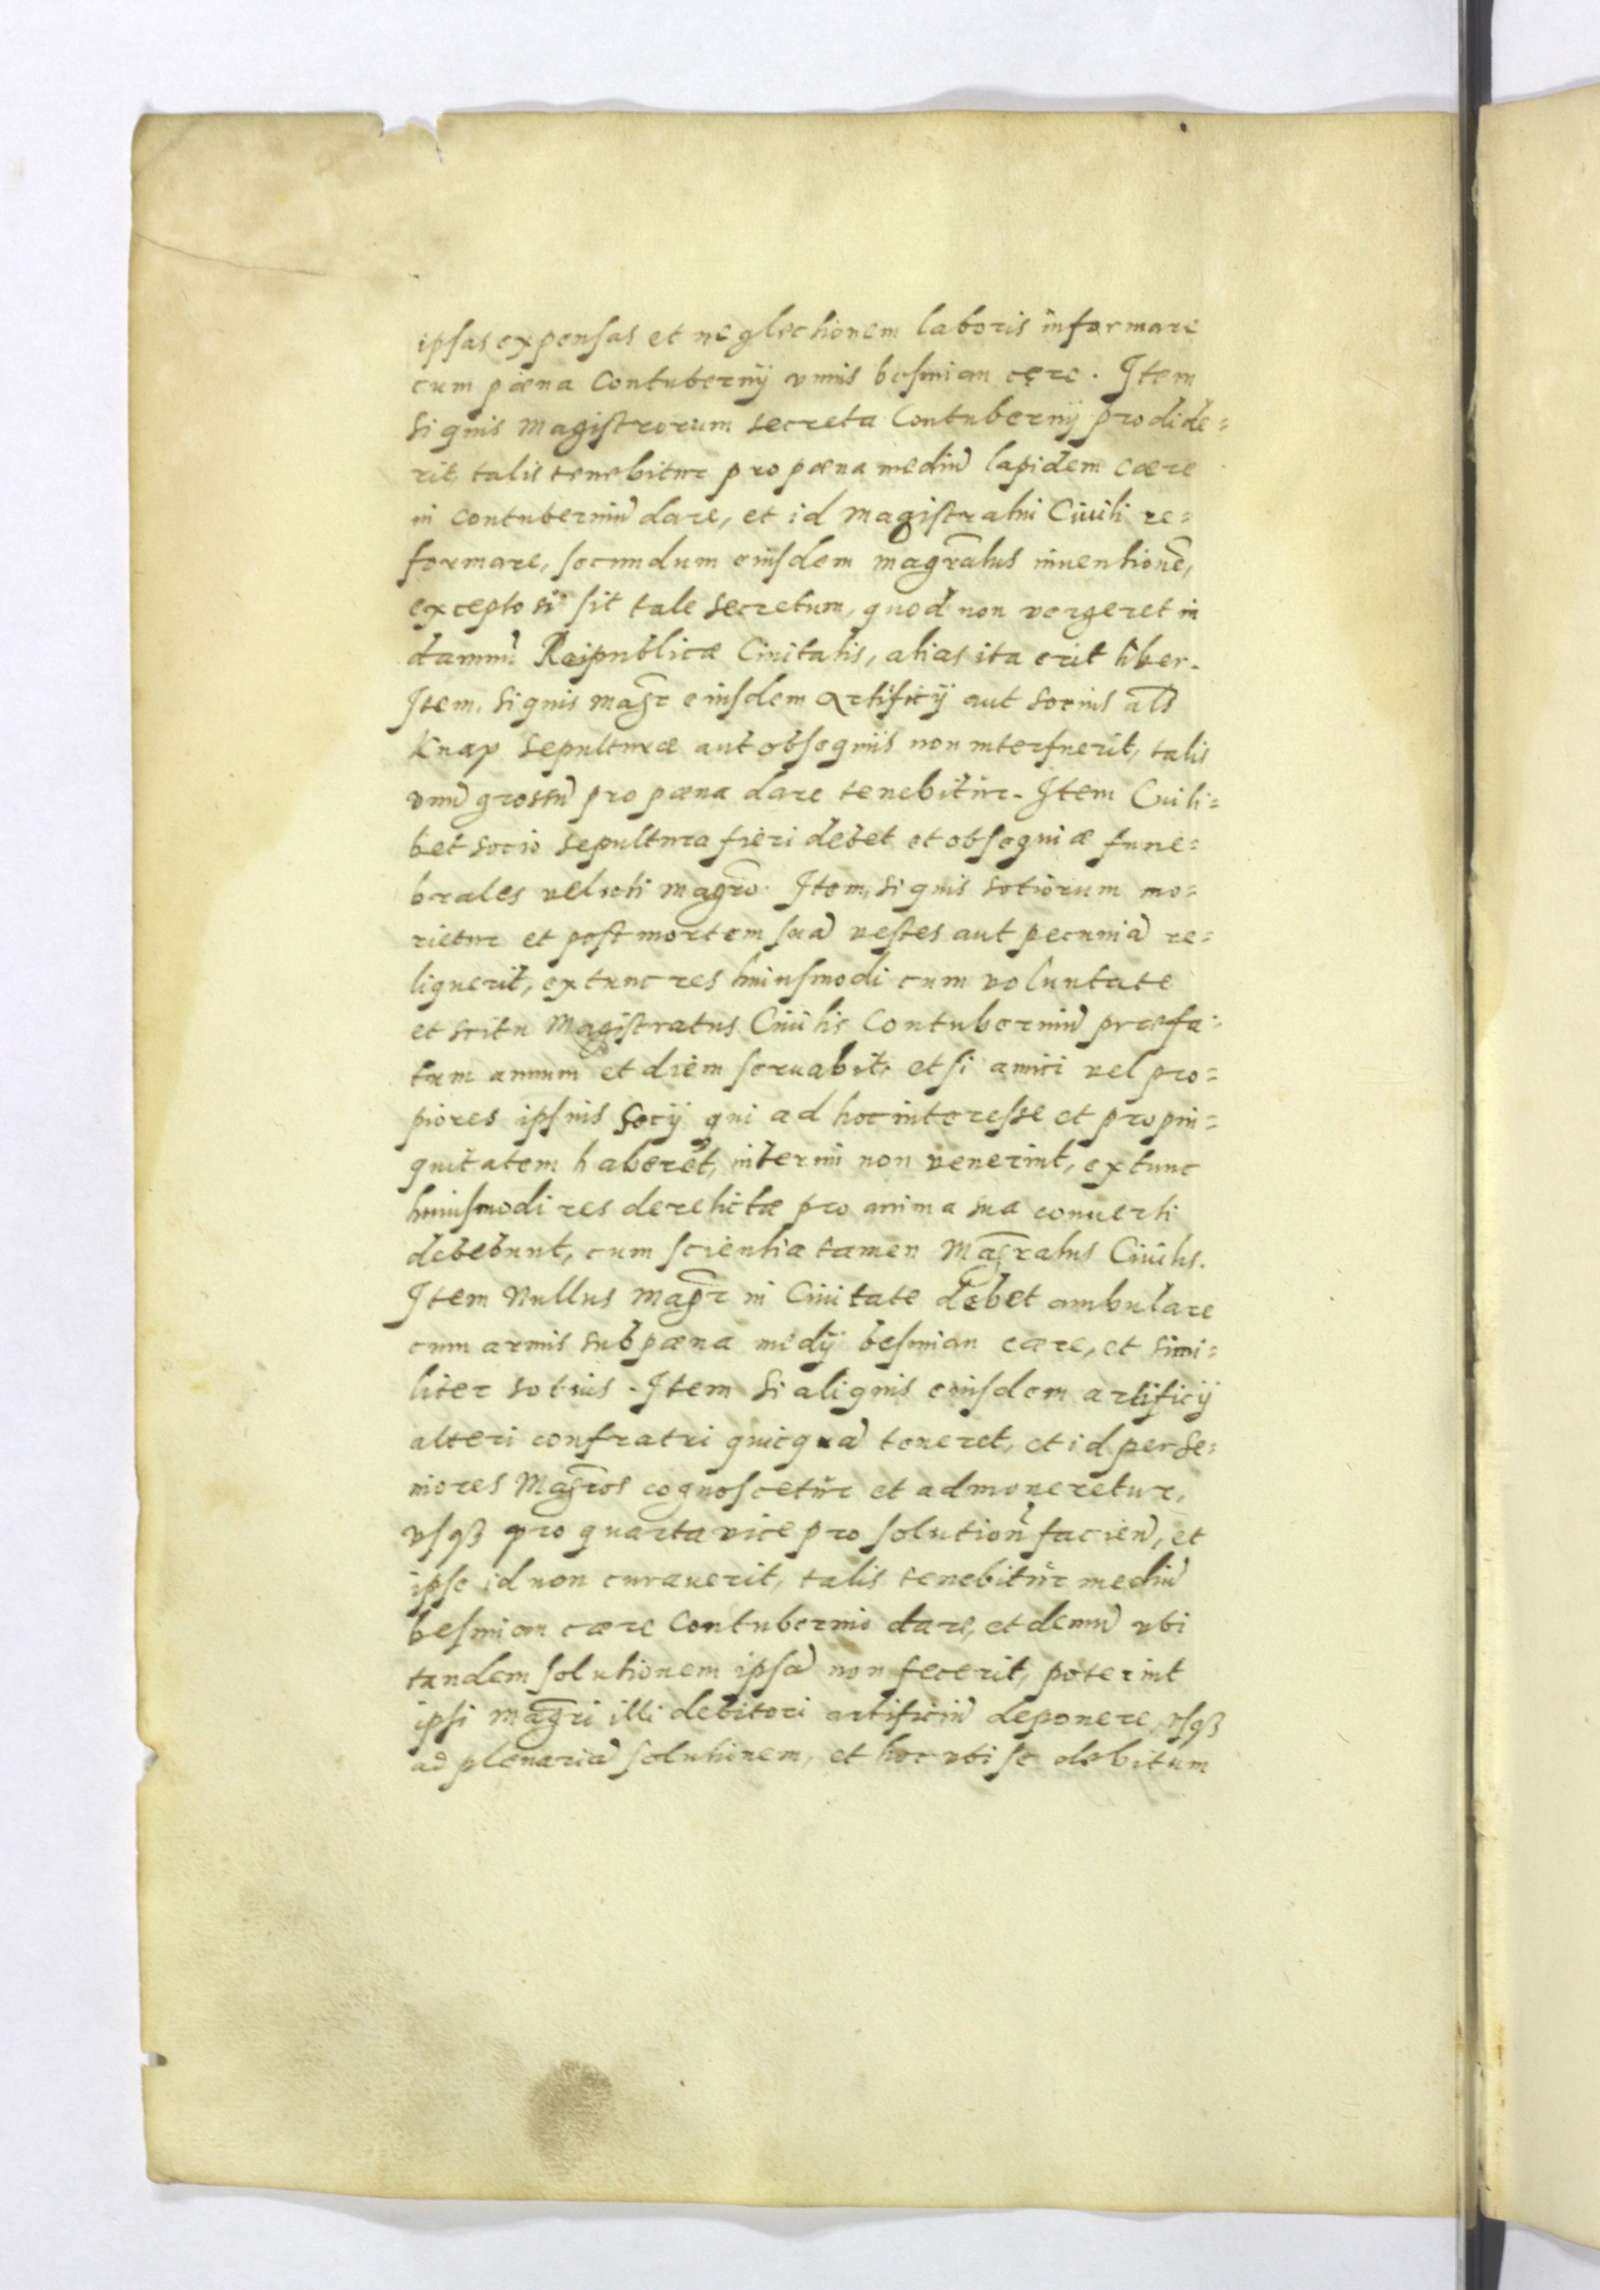 ipsas expensas et neglectionem laboris informare
cum pæna Contubernÿ vnnis besmian cere. Item
Si quis Magistrorum secreta Contubernÿ prodide=
rit, talis tenebitur pro pæna mediũ lapidem cære
in Contuberniũ dare, et id Magistratui Ciuili re=
formare, secundum eiusdem magr̃atus inuentionẽ,
excepto si sit tale secretum, quod non vergeret in
damnũ Reipublicæ Ciuitatis, alias ita erit liber.
Item, si quis magr̃ eiusdem Artificÿ aut socius al̃s
Knap sepulturæ aut obsequiis non interfuerit, talis
vnũ grossũ pro pæna dare tenebitur. Item Cuili=
bet socio sepultura fieri debet et obsequiæ fune=
brales veluti magr̃o. Item, si quis sotiorum mo=
rietur et post mortem suã vestes aut pecuniã re=
liquerit, extunc res huiusmodi cum voluntate
et scitu Magistratus Ciuilis Contuberniũ præfa=
tum annum et diem seruabit, et si amici vel pro=
piores ipsius Socÿ qui ad hoc interesse et propin=
quitatem haberẽt, interim non venerint, extunc
huiusmodi res derelictæ pro anima sua conuerti
debebunt, cum scientia tamen Magr̃atus Ciuilis.
Item Nullus Magr̃ in Ciuitate debet ambulare
cum armis sub pæna medÿ besmian cære, et simi=
liter sotius. Item Si aliquis eiusdem artificÿ
alteri confratri quicquã teneret, et id per Se=
niores Magr̃os cognoscetur et admoneretur,
vsqȝ pro quarta vice pro solution̉ faciẽn, et
ipse id non curauerit, talis tenebitur mediũ
besmian cære Contubernio dare, et demũ vbi
tandem solutionem ipsã non fecerit, poterint
ipsi Magr̃i illi debitori artificiũ deponere, vsqȝ
ad plenariã solutinem, et hoc vbi se debitum